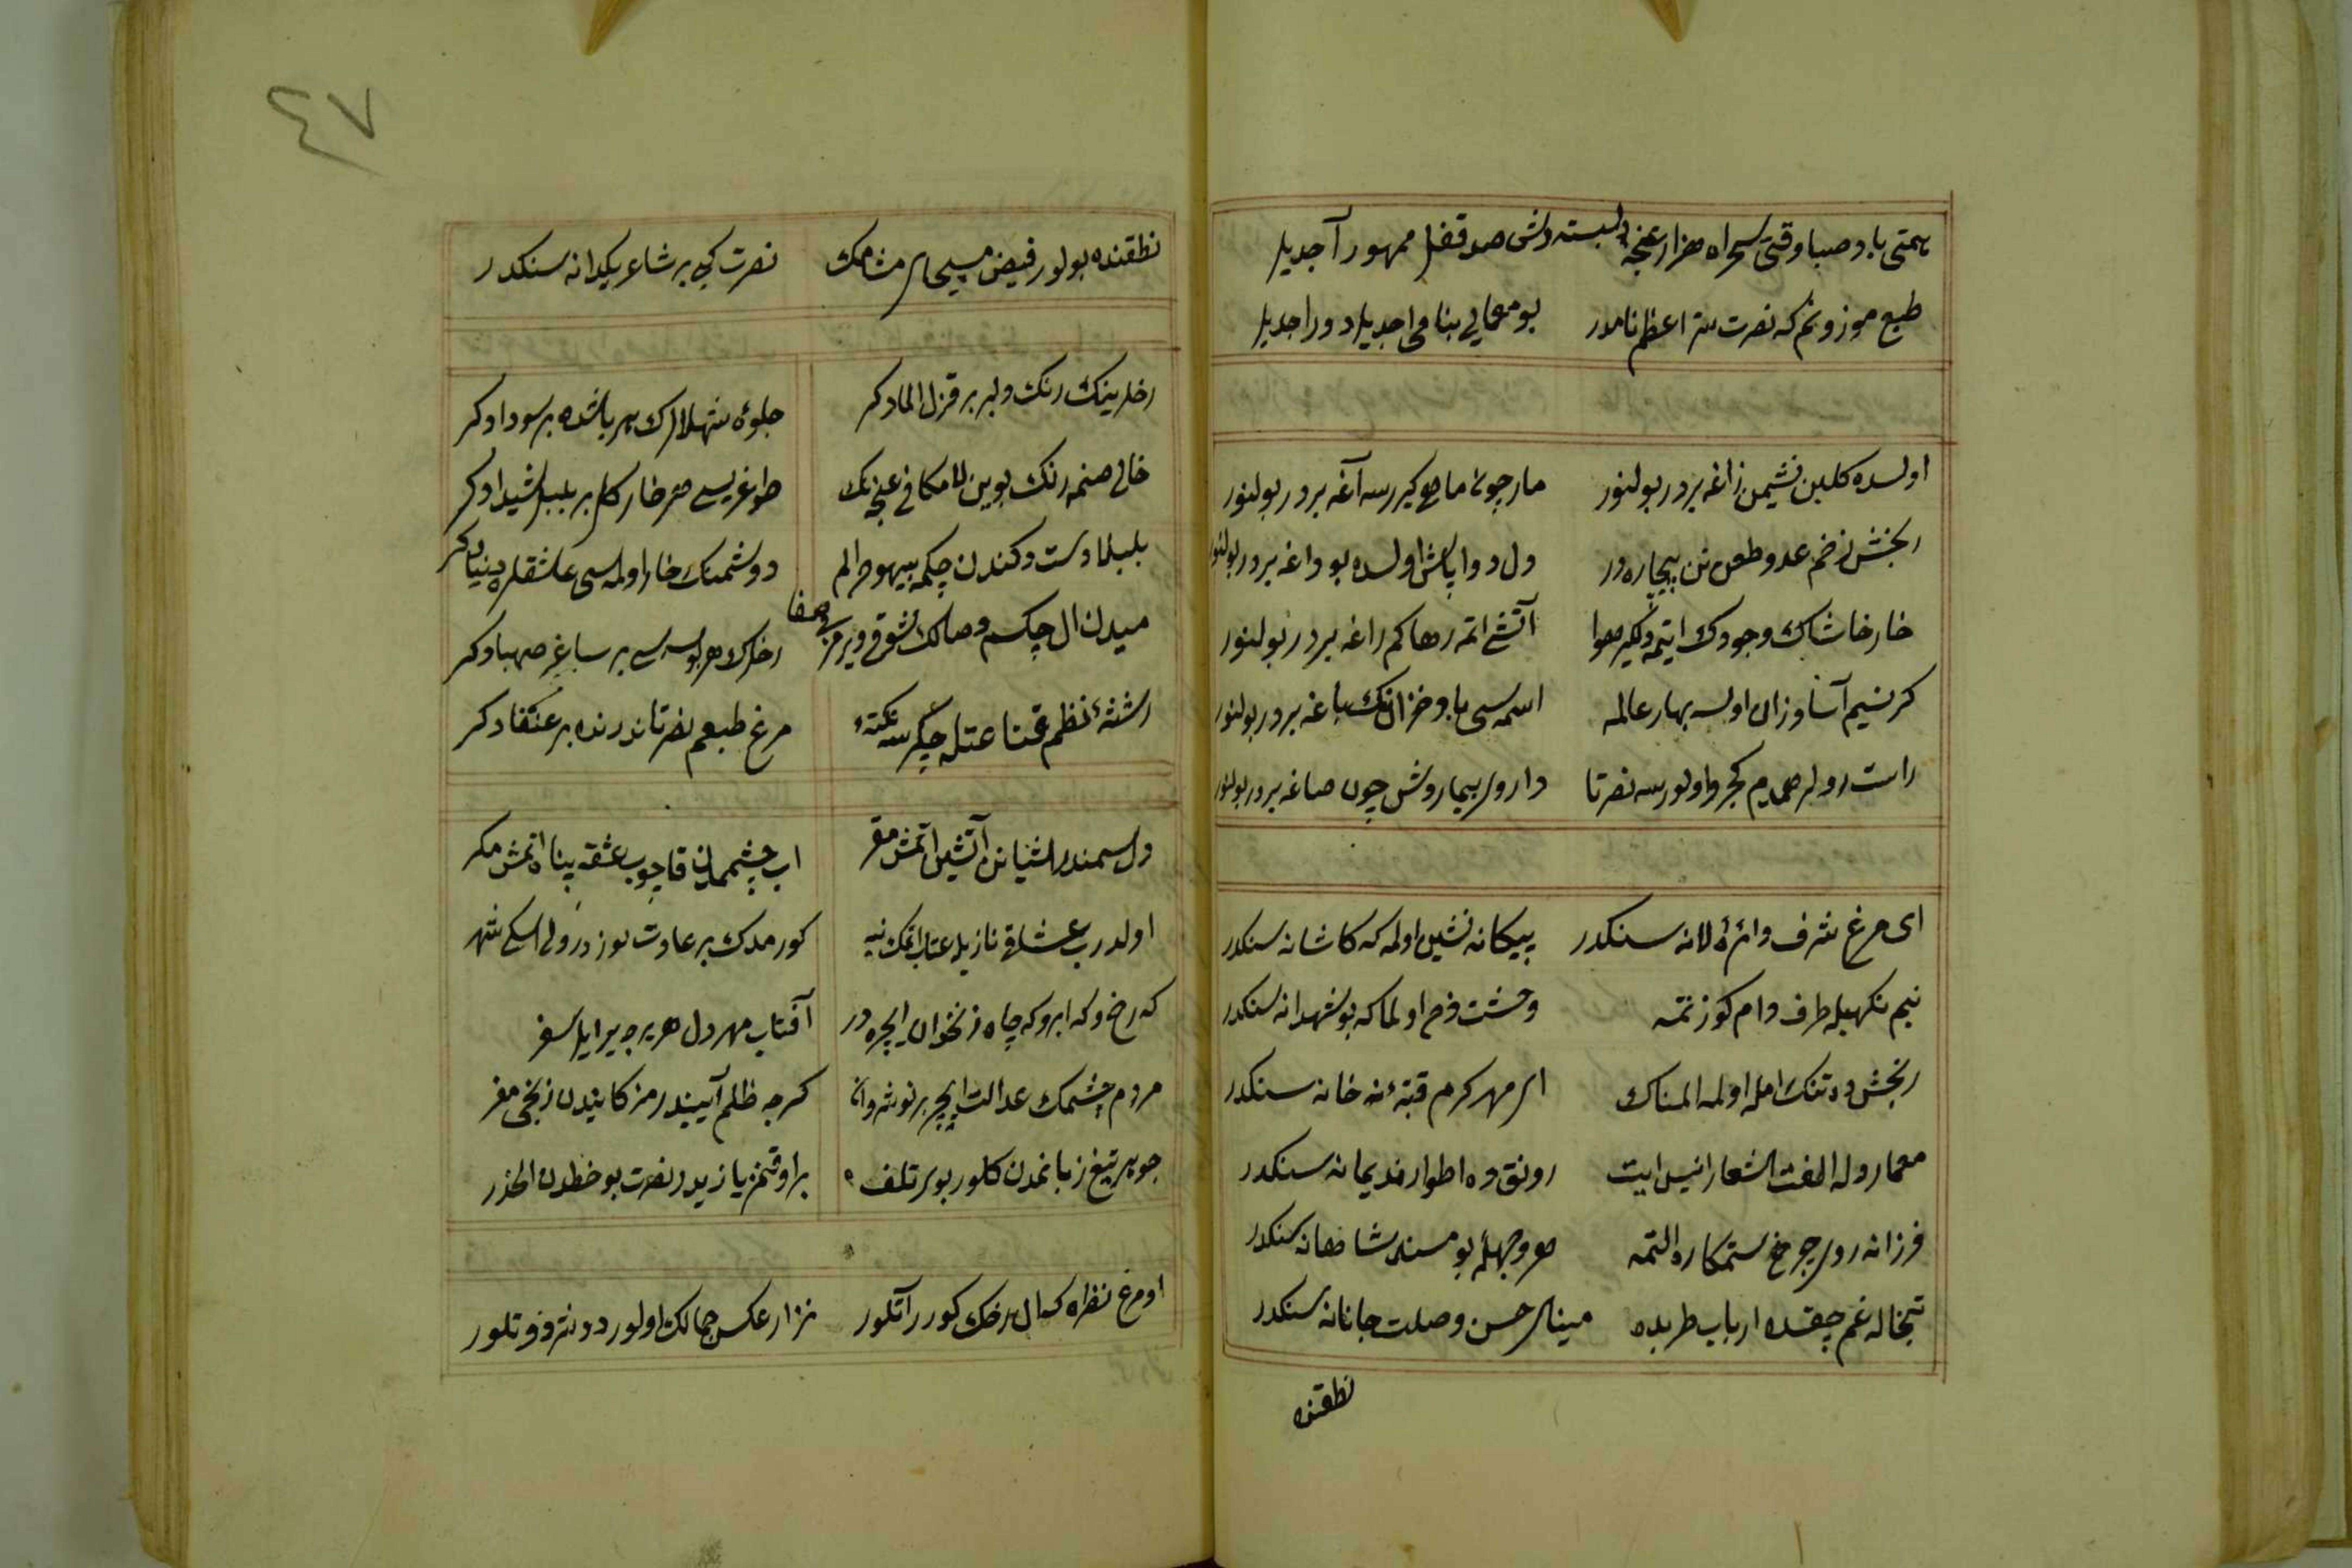 همتی باد صبا وقتی سحراه هزار غنچه دلبسته دلش صد قفل ممهور آجدیلر
طبع موزونم که نصرت سر اعظم نامدر بو معمایی بنامی اجدیلر دور اجدیلر
اولسده کلبن نشیمن زاغه بردر بولنور مارجونه ماهی کیررسه آغه بردر بولنور
رنجش زخم عدو طعن تن بیچاره در دل دوا پاش اولسده بو داغه بردر بولنور
خار خاشاک وجودک ایتمه دلکیر هوا آتشی اتمه رها کم راغه بردر بولنور
کر نسیم آسا وزان اولسه بهار عالمه اسمه سی باد خزانک باغه بردر بولنور
راست رولر همدم کجرو اولورسه نصرتا داروی بیمار وش چون صاغه بردر بولنور
ای مرغ شرف دائرهٔ لانه سنکدر بیکانه نشین اولمه که کاشانه سنکدر
نیم نکهیله طرف دام کوزتمه وحشت فرح اولما که بو شهدانه سنکدر
رنجش ده تنک امله اولمه المناک ای مهر کرم قبهٔ نه خانه سنکدر
معمار دله الفت اشعار انیس ایت رونق ده اطوار ندیمانه سنکدر
فرزانه روی چرخ ستمکاره التمه هر وجهله بو مسند شاهانه سنکدر
تبخاله غم چقسده ارباب طربده مینای حسن وصلت جانانه سنکدر
نطقنده
٤٧
نطقنده بولور فیض مسیحای مشامک نصرت کبی بر شاعر یکدانه سنکدر
رخلرینک رنک دلبر بر قزل المادکر جلوهٔ شهلالرک هر باشده بر سودا دکر
خالی صنمه رنک بوین لامکافی غنچه نک طوغریسی هر خار کل بر بلبل شیدا دکر
بلبلا دست دکندن چکمه بیهوده الم دوشمنک خار اولمه سی عاشقلره دنیا دکر
میدن ال چکسم وصالک شوقی ویرمز می صفا رخلرک هر بوسه سی بر ساغر صهبا دکر
رشتهٔ نظم قناعتله چکرسه نکتهٔ مرغ طبعم نصرتا ندرنده بر عنقا دکر
دل سمندر اشیانن آتشین اتمش مقر اب چشممدن قاچوب عشقه پناه اتمش مکر
اولدرب عشاقی نازیله عتاب اتمک نیه کورمدک بر عادت بوزدرولی اسکی شهر
که رخ و که ابرو که چاه زنخدان ایچره در آفتاب مهر دل هر برجه بیر ایلر سفر
مردم چشمک عدالت ایچره بر نوشروان کرچه ظلم آیینیدر مژکانیدن زخمی مفر
جوهر تیغ زبانمدن کلور بوی تلف بر اوقنمز یازیدر نصرت بو خطدن الحذر
او مرغ نظراه که ال رخک کورر آتلور نزار عکس جمالک اولور دونر فوتلور